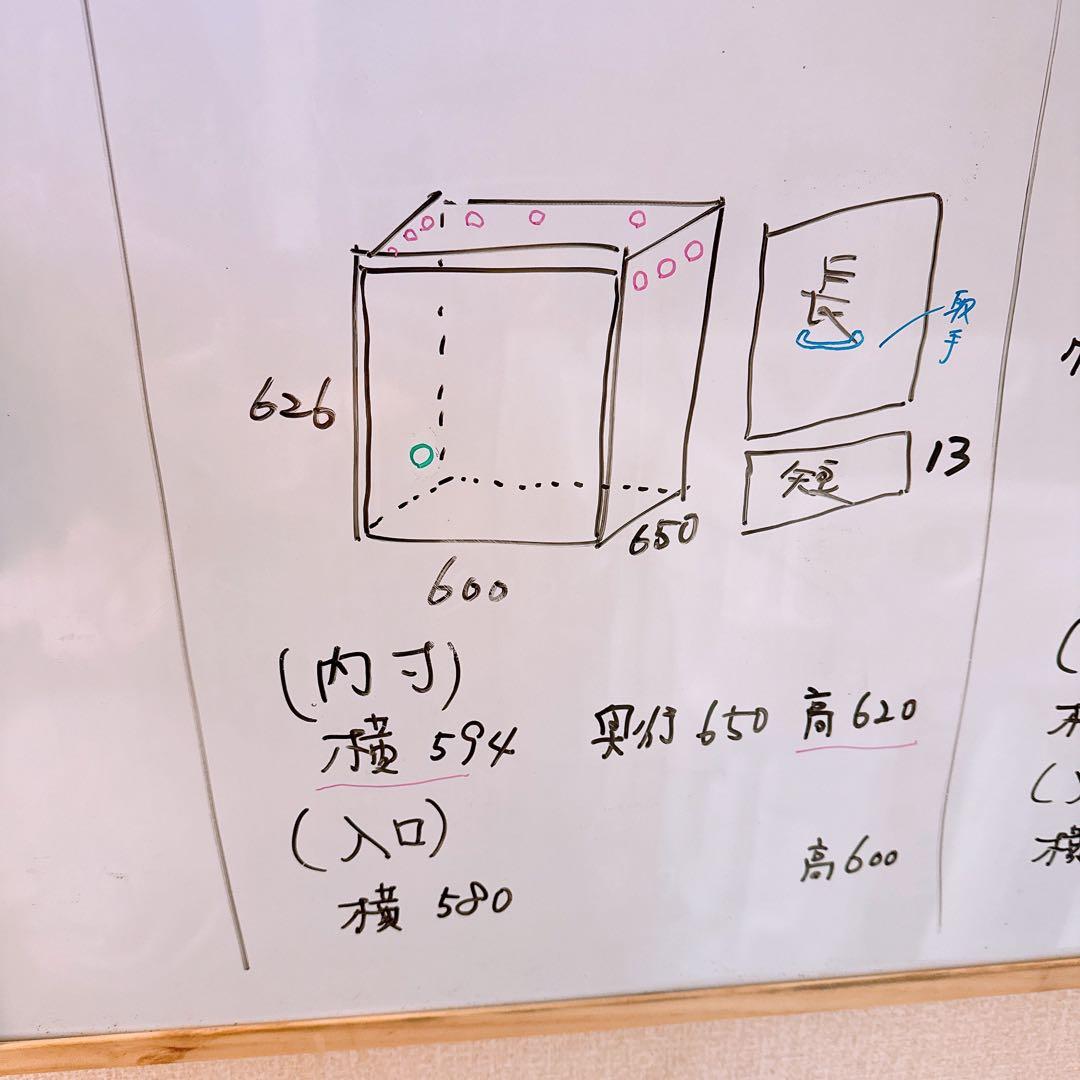 長
取手
626
13
短
650
600
(内寸)
横 594 奥行 650 高 620
(入口)
横 580 高 600